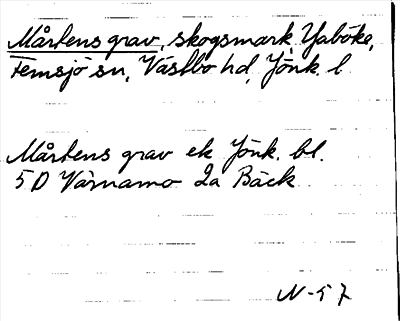 Mårtens grav, skogsmark, Yaböke,
Femsjö sn, Västbo hd, Jönk. l
Mårtens grav ek Jönk. bl.
5 D Värnamo 2a Bäck
N-57